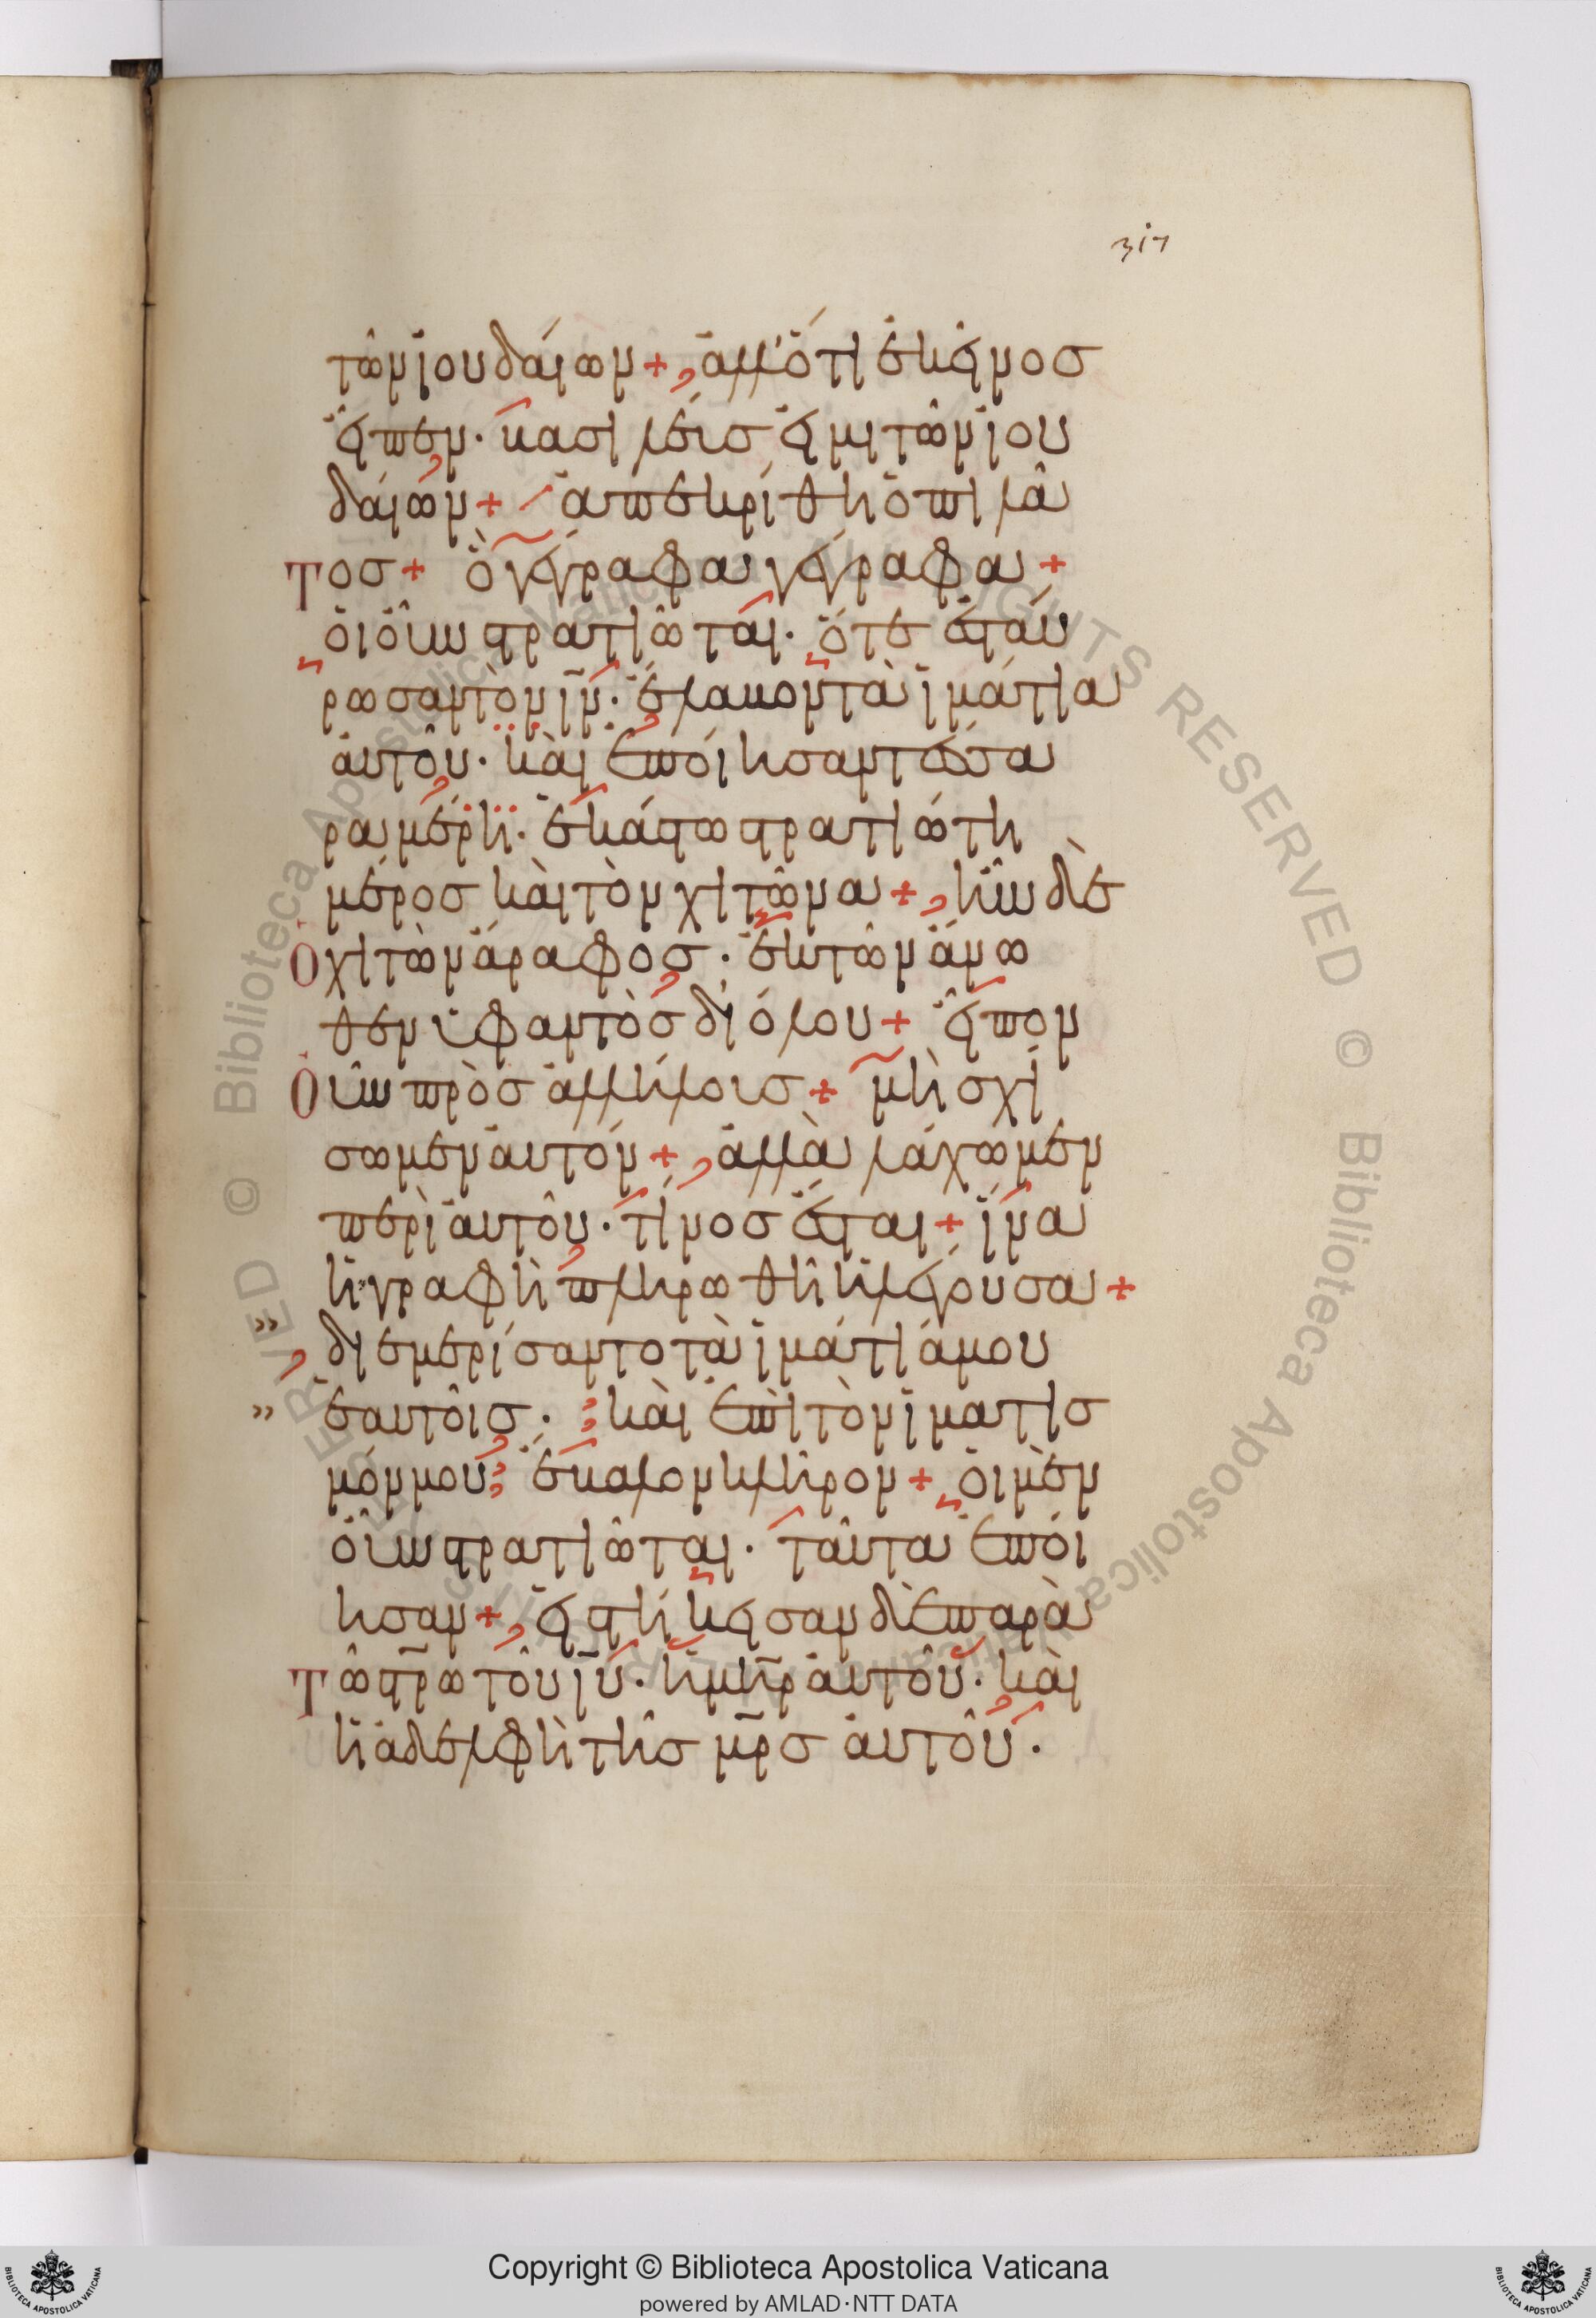 317
τῶν ἰουδαίων + ἀλλ' ὅτι ἐκεῖνος
εἶπεν · βασιλεύς εἰμι τῶν ἰου
δαίων + ἀπεκρίθη ὁ πιλᾶ
τος + ὃ γέγραφα γέγραφα +
οἱ οὖν στρατιῶται · ὅτε ἐσταύ
ρωσαν τὸν ιν̅ · ἔλαβον τὰ ἱμάτια
αὐτοῦ · καὶ ἐποίησαν τέσσα
ρα μέρη · ἑκάστω στρατιώτη
μέρος καὶ τὸν χιτῶνα + ἦν δὲ
ὁ χιτὼν ἄραφος · ἐκ τῶν ἄνω
θεν ὑφαντὸς δι' ὅλου + εἶπον
οὖν πρὸς ἀλλήλους + μὴ σχί
σωμεν αὐτόν + ἀλλὰ λάχωμεν
περὶ αὐτοῦ · τίνος ἔσται + ἵνα
ἡ γραφὴ πληρωθῆ ἡ λέγουσα +
» διεμερίσαντο τὰ ἱμάτιά μου
» ἑαυτοῖς · καὶ ἐπὶ τὸν ἱματισ
μόν μου ἔβαλον κλῆρον + οἱ μὲν
οὖν στρατιῶται · ταῦτα ἐποί
ησαν + εἱστήκεσαν δὲ παρὰ
τῶ στρω̅ τοῦ ιυ̅ · ἡ μηρ̅ αὐτοῦ · καὶ
ἡ ἀδελφὴ τῆς μρ̅ς αὐτοῦ ·
Copyright © Biblioteca Apostolica Vaticana
powered by AMLAD·NTT DATA